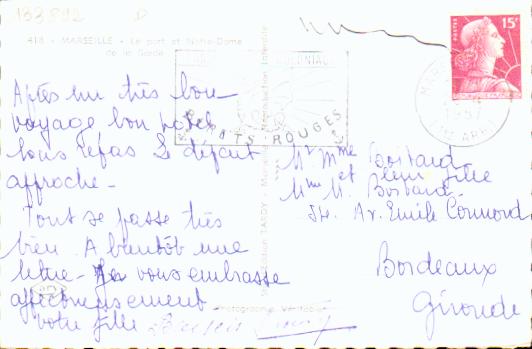 133892
418 - MARSEILLE - Le port et Notre-Dame
de la Garde
Après un très bon
voyage bon hôtel
bons repas le départ
approche -
Tout se passe très
bien. A bientôt une
lettre - vous embrasse
affectueusement
votre fille
ROUGES
Reproduction Interdite
TARDY
Photographie Véritable
15F
POSTES
MAR
1957
Mr Mme Boitard
et leur fille
Mme M. Boitard
Av. Emile Counord
Bordeaux
Gironde